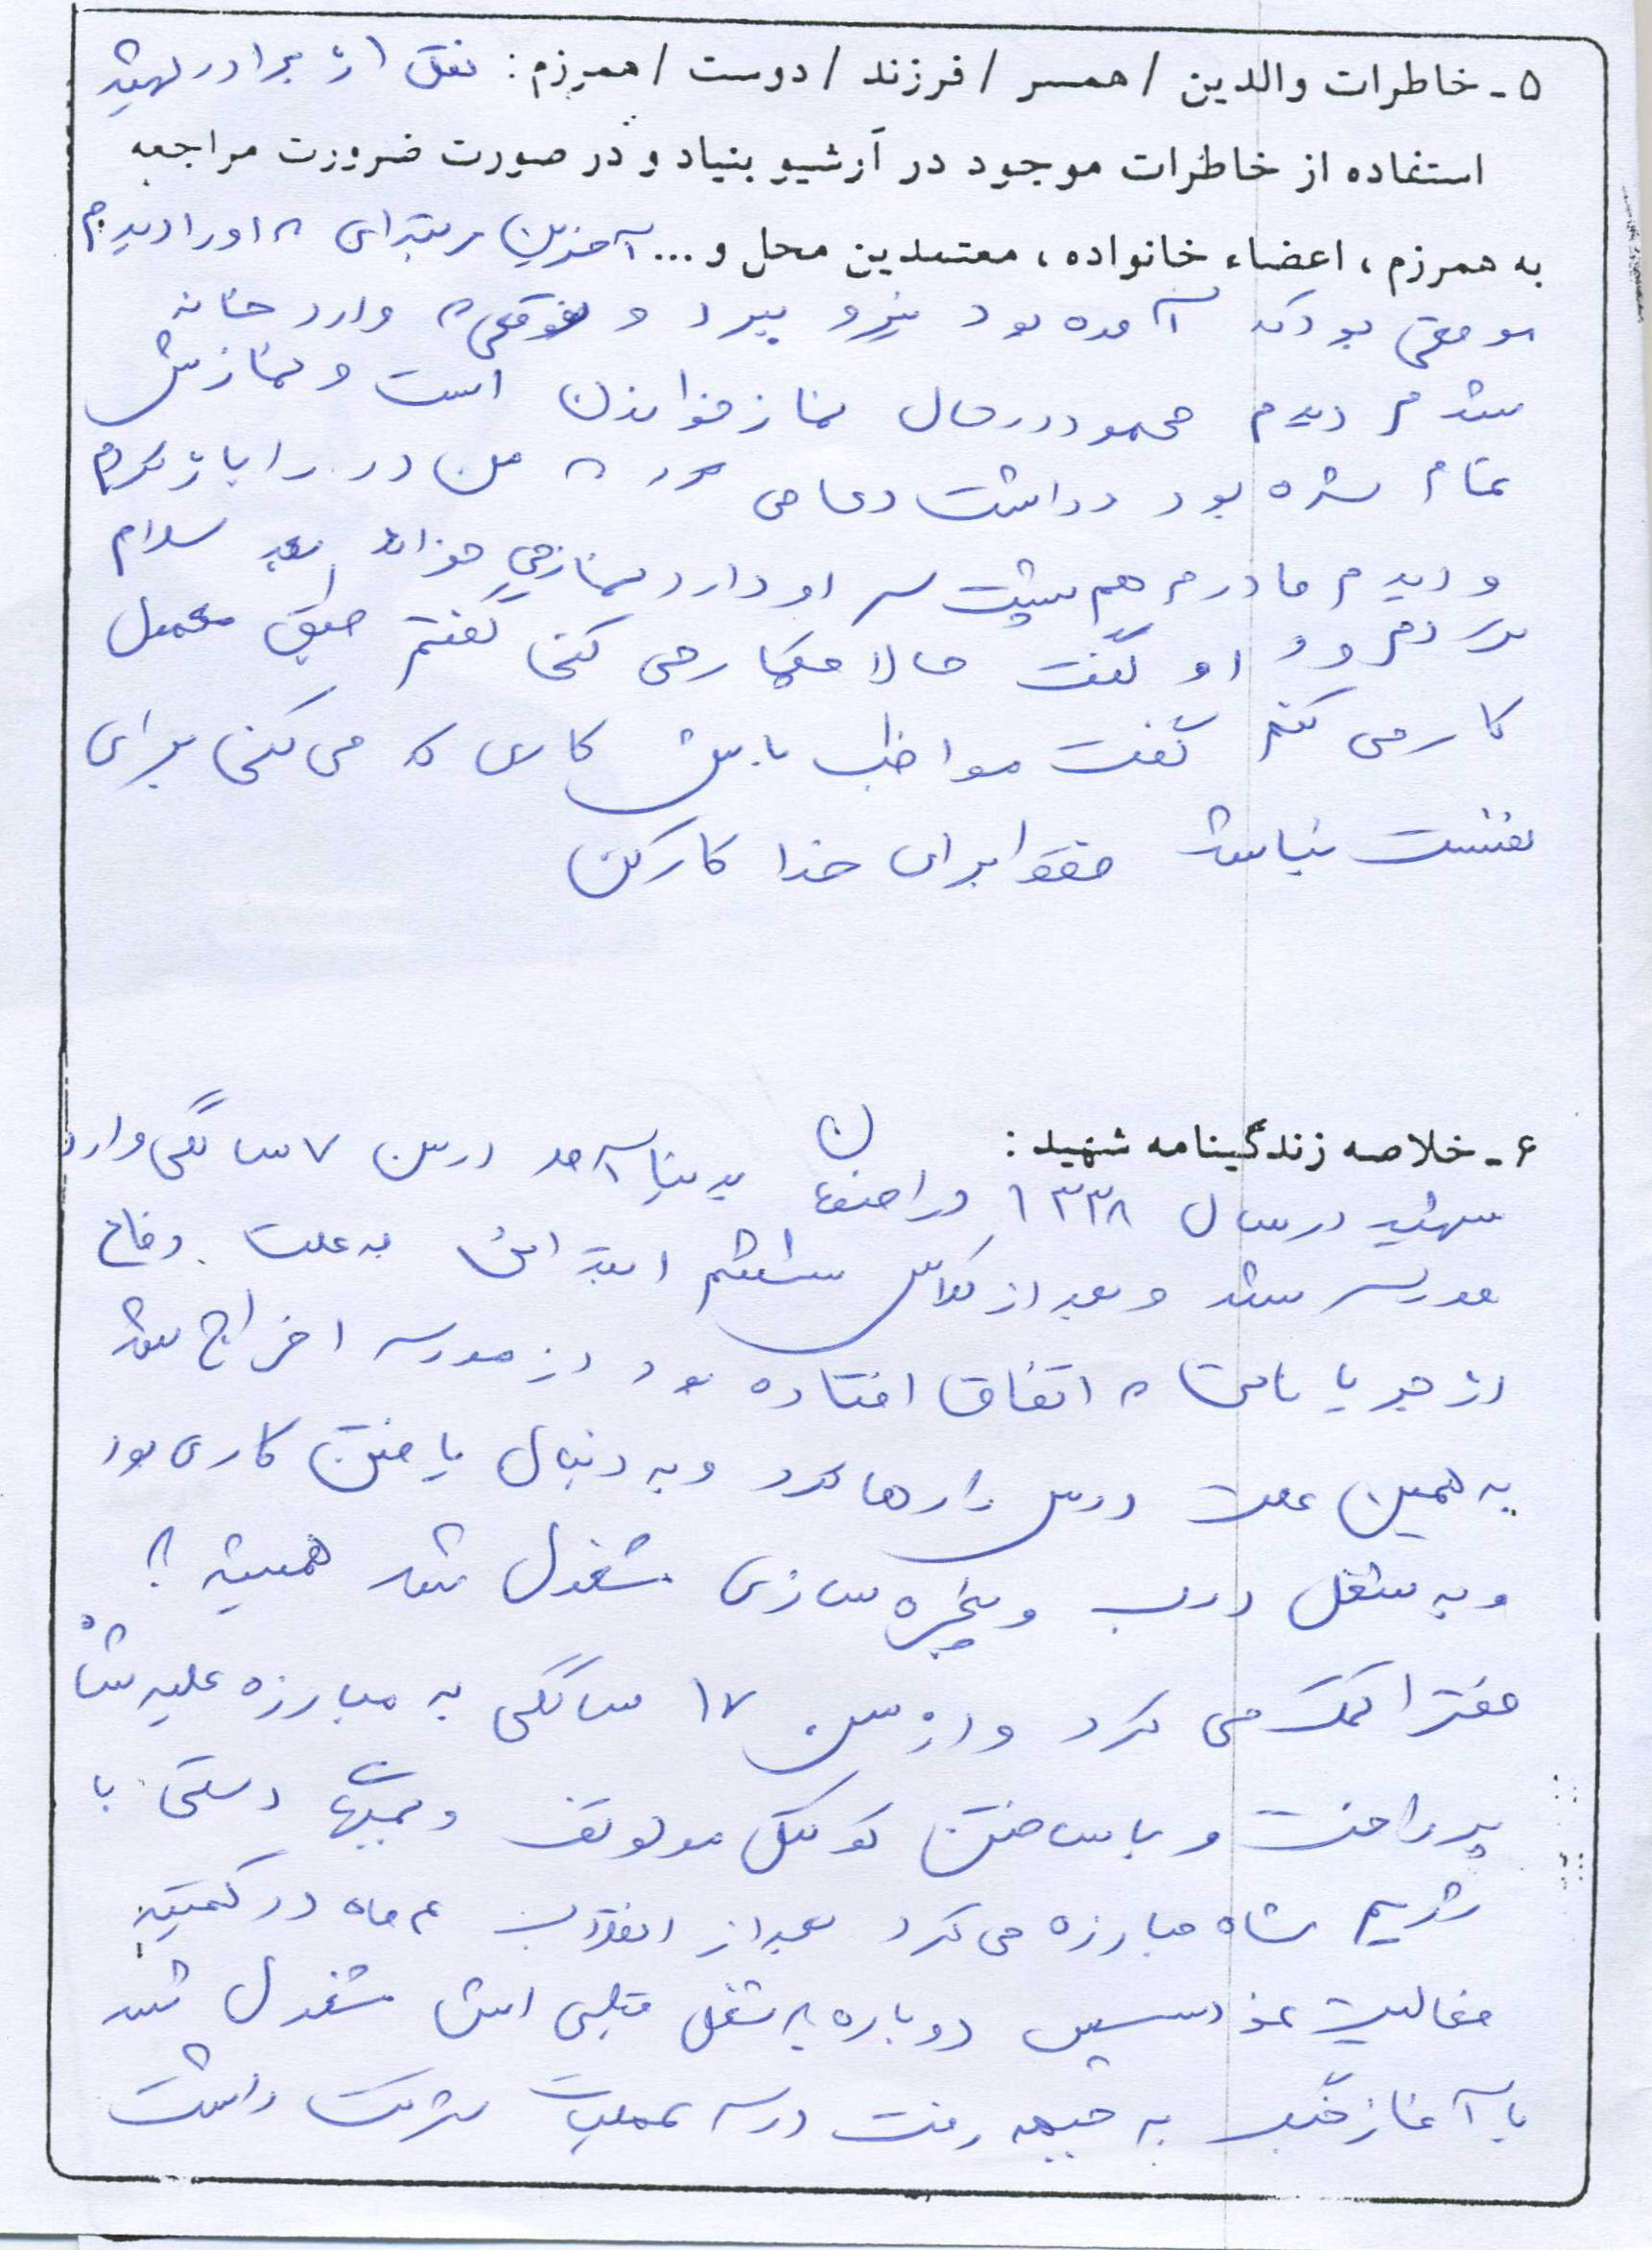 ۵ - خاطرات والدین / همسر / فرزند / دوست / همرزم : نقل از برادر شهید
استفاده از خاطرات موجود در آرشیو بنیاد و در صورت ضرورت مراجعه
به همرزم ، اعضاء خانواده ، معتمدین محل و ... آخرین مرتبه‌ای که او را دیدم
موقعی بود که آمده بود نیرو ببرد و موقعی که وارد خانه
شدم دیدم محمود در حال نماز خواندن است و نمازش
تمام شده بود و داشت دعا می کرد که من در را باز کردم
و دیدم مادرم هم پشت سر او دارد نماز می خواند بعد سلام
کردم و او گفت حالا چکار می کنی گفتم طبق معمول
کار می کنم گفت مواظب باش کاری که می کنی برای
نفست نباشد فقط برای خدا کار کن
۶ - خلاصه زندگینامه شهید :
شهید در سال ۱۳۳۸ در اصفهان به دنیا آمد در سن ۷ سالگی وارد
مدرسه شد و بعد از کلاس ششم ابتدائی به علت دفاع
از جریاناتی که اتفاق افتاده بود از مدرسه اخراج شد
به همین علت درس را رها کرد و به دنبال یافتن کاری بود
و به شغل درب و پنجره سازی مشغول شد همیشه به
فقرا کمک می کرد و از سن ۱۷ سالگی به مبارزه علیه شاه
پرداخت و با ساختن کوکتل مولوتف و بمبهای دستی با
رژیم شاه مبارزه می کرد بعد از انقلاب ۴ ماه در کمیته
فعالیت نمود سپس دوباره به شغل قبلی اش مشغول شد
با آغاز جنگ به جبهه رفت در سه عملیات شرکت داشت